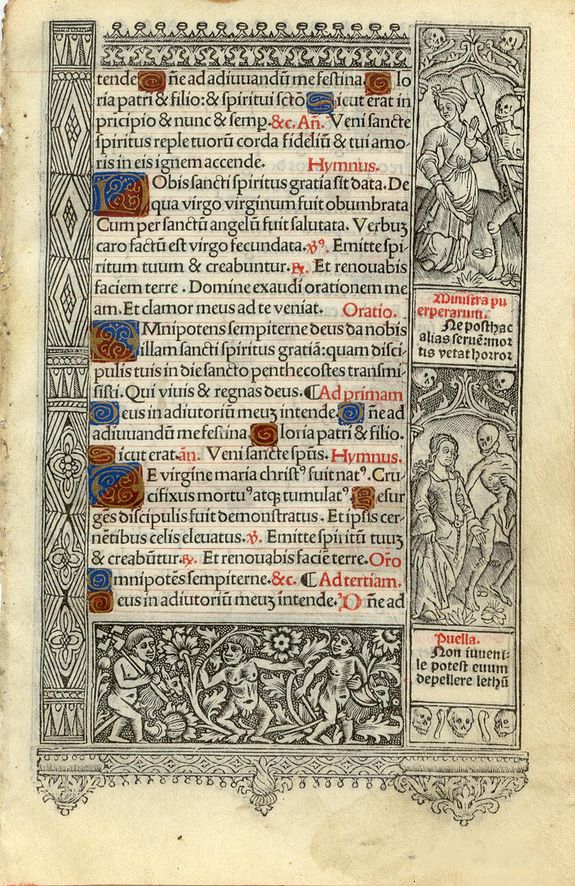 tende Dñe ad adiuvandũ me festina. Glo
ria patri & filio: & spiritui scto Sicut erat in
pricipio & nunc & semp. &c. Añ. Veni sancte
spiritus reple tuorũ corda fideliũ & tui amo
ris in eis ignem accende. Hymnus.
NObis sancti spiritus gratia sit data. De
qua virgo virginum fuit obumbrata
Cum per sanctũ angelũ fuit salutata. Verbuʒ
caro factũ est virgo fecundata. ℣ꝰ. Emitte spi
ritum tuum & creabuntur. ℟. Et renouabis
faciem terre. Domine exaudi orationem me
am. Et clamor meus ad te veniat. Oratio.
OMnipotens sempiterne deus da nobis
illam sancti spiritus gratiã: quam disci
pulis tuis in die sancto penthecostes transmi
sisti. Qui vivis & regnas deus. ¶Ad primam
Deus in adiutoriũ meuʒ intende. Dñe ad
adiuvandũ me festina. Gloria patri & filio.
Sicut erat. añ. Veni sancte spũs. Hymnus.
DE virgine maria christꝰ fuit natꝰ. Cru
cifixus mortuꝰ atqꝫ tumulatꝰ. Resur
gẽs discipulis fuit demonstratus. Et ipsis cer
nẽtibus celis eleuatus. ℣. Emitte spiritũ tuuʒ
& creabũtur. ℟. Et renouabis faciẽ terre. Oro
Omnipotẽs sempiterne. &c. ¶Ad tertiam.
Deus in adiutoriũ meuʒ intende. Dñe ad
Ministra pu
erperarum.
Ne posthac
alias seruẽ: mor
tis vetat horror
Puella.
Non iuueni-
le potest euum
depellere lethũ